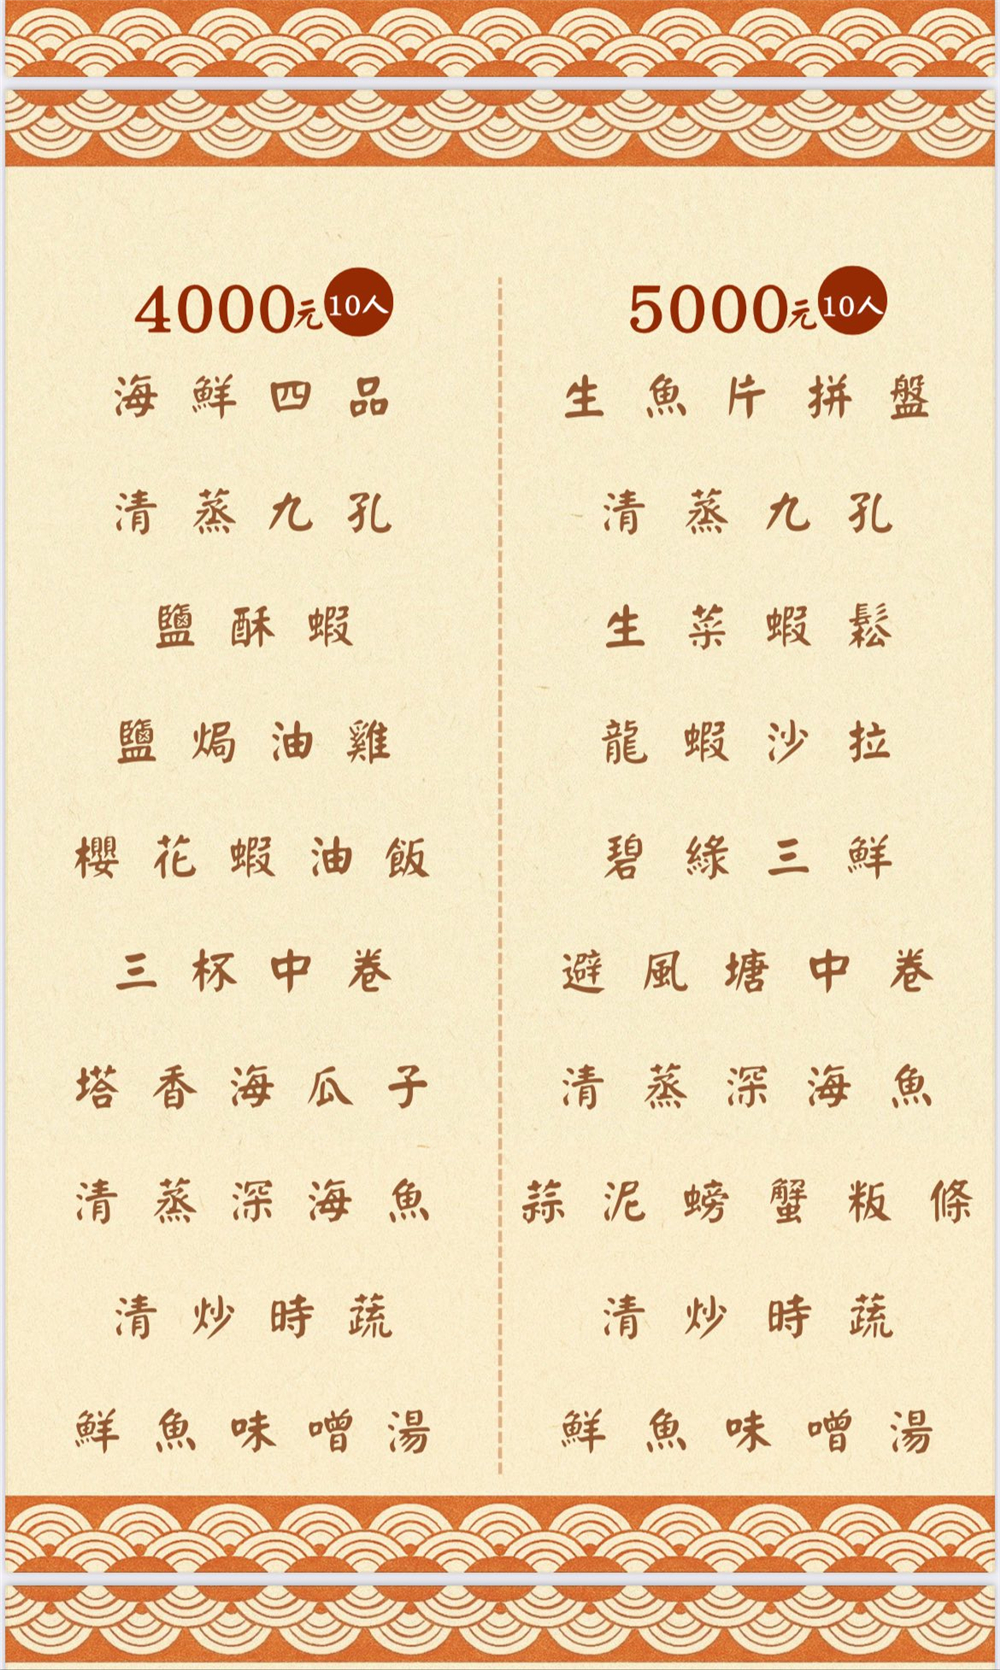 4000元10人
海鮮四品
清蒸九孔
鹽酥蝦
鹽焗油雞
櫻花蝦油飯
三杯中卷
塔香海瓜子
清蒸深海魚
清炒時蔬
鮮魚味噌湯
5000元10人
生魚片拼盤
清蒸九孔
生菜蝦鬆
龍蝦沙拉
碧綠三鮮
避風塘中卷
清蒸深海魚
蒜泥螃蟹粄條
清炒時蔬
鮮魚味噌湯